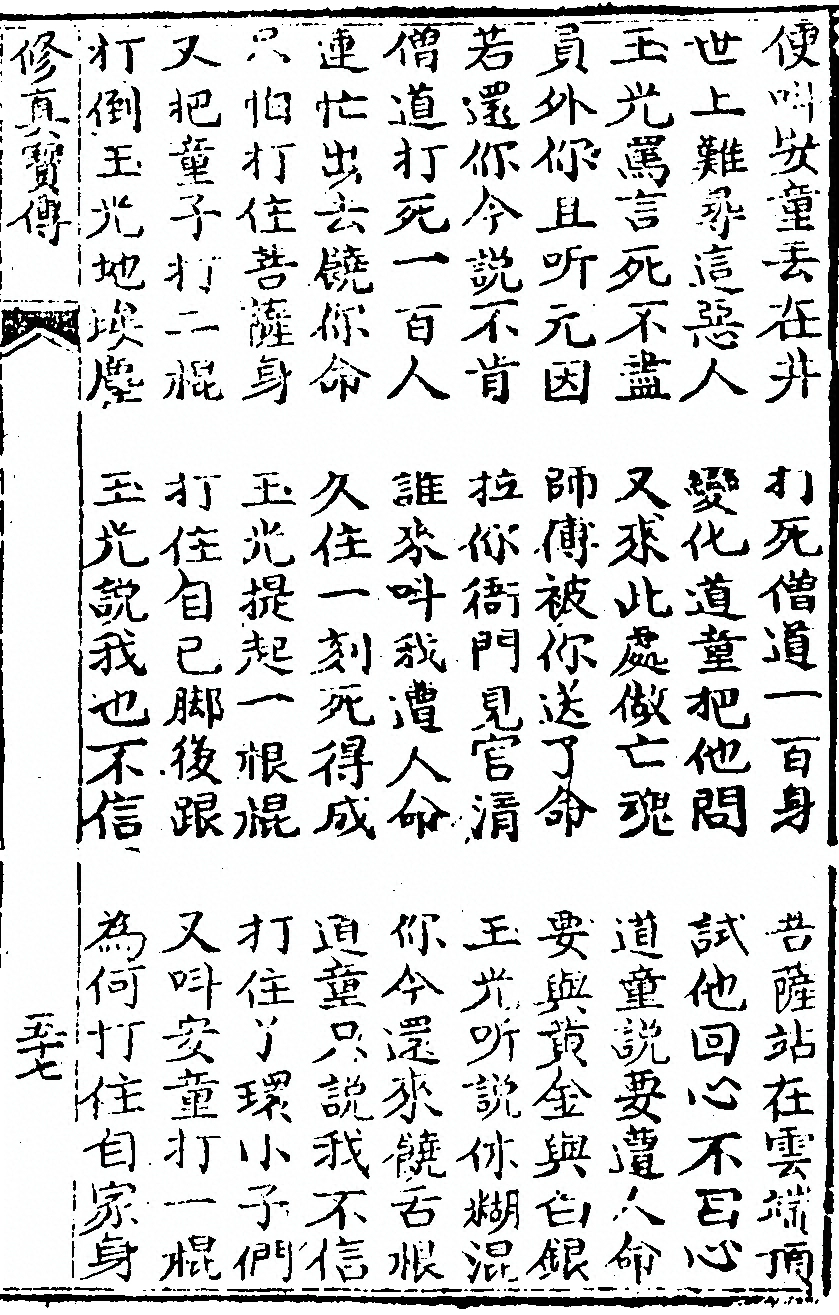 便叫安童丢在井 打死僧道一百身 菩薩站在雲端頂
世上難尋這惡人 變化道童把他問 試他回心不回心
玉光罵言死不盡 又來此處做亡魂 道童説要遭人命
員外你且听元因 師傅被你送了命 要與黄金與白銀
若還你今説不肯 拉你衙門見官清 玉光听説休糊混
僧道打死一百人 誰來叫我遭人命 你今還來饒舌根
連忙出去饒你命 久住一刻死得成 道童只説我不信
只怕打住菩薩身 玉光提起一根棍 打住丫環小子們
又把童子打二棍 打住自己脚後跟 又叫安童打一棍
打倒玉光地埃塵 玉光説我也不信 為何打住自家身
修真寶傳 五十七